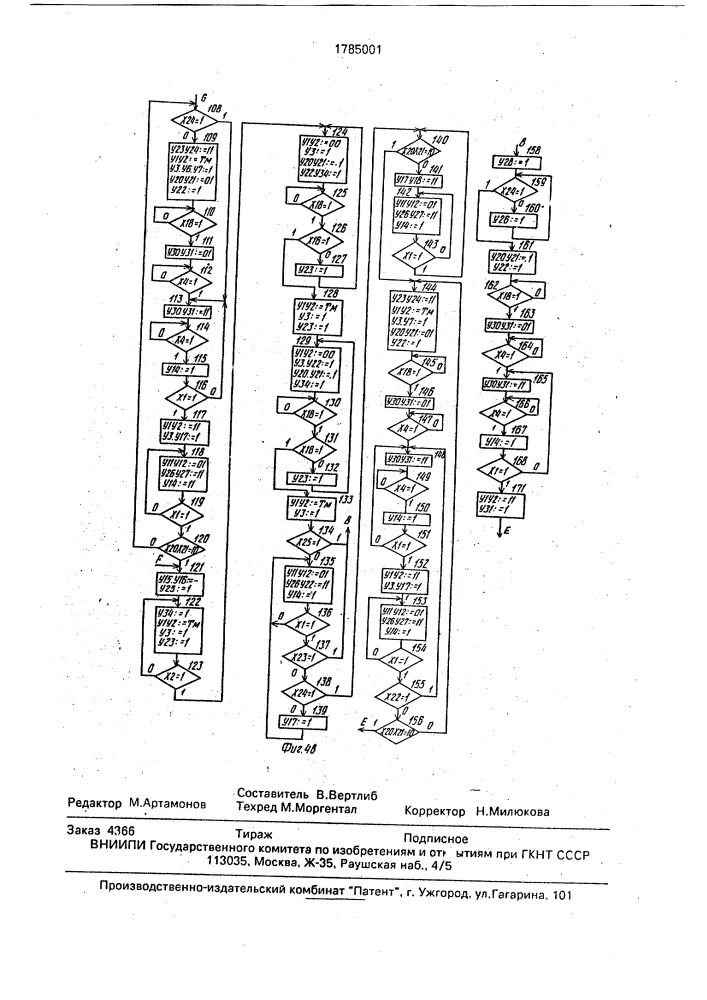 1785001
G
108
X24=1
1
0
109
У23У24:=11
У1У2:=Тм
У3.У6.У7:=1
У20У21:=01
У22:=1
110
0
X18=1
1
111
У30У31:=01
112
0
X4=1
1
113
У30У31:=11
114
0
X4=1
1
115
У14:=1
116
X1=1
0
1
117
У1У2:=11
У3.У17:=1
118
У11У12:=01
У26У27:=11
У14:=1
119
0
X1=1
1
120
0
X20X21=10
E
121
У15.У16:=-
У25:=1
122
У34:=1
У1У2:=Тм
У3:=1
У23:=1
123
0
X2=1
1
124
У1У2:=00
У3:=1
У20У21:=-.1
У22У34:=1
125
0
X18=1
1
126
1
X16=1
0
127
У23:=1
128
У1У2:=Тм
У3:=1
У23:=1
129
У1У2:=00
У3.У22:=1
У20.У21:=-.1
У34:=1
130
0
X18=1
1
131
1
X16=1
0
132
У23:=1
133
У1У2:=Тм
У3:=1
134
B
X25=1
1
0
135
У11У12:=01
У26У22:=11
У14:=1
136
0
X1=1
1
137
X23=1
1
0
138
X24=1
1
0
139
У17:=1
140
1
X20X21=10
0
141
У17У18:=11
142
У11У12:=01
У26У27:=11
У14:=1
143
X1=1
0
1
144
У23У24:=11
У1У2:=Тм
У3.У7:=1
У20У21:=01
У22:=1
145
X18=1
0
1
146
У30У31:=01
147
X4=1
0
1
148
У30У31:=11
149
0
X4=1
1
150
У14:=1
151
0
X1=1
1
152
У1У2:=11
У3.У17:=1
153
У11У12:=01
У26У27:=11
У14:=1
154
0
X1=1
1
155
X22=1
1
0
156
E
1
X20X21=10
0
B
158
У28:=1
159
1
X24=1
0
160
У26:=1
161
У20У21:=-.1
У22:=1
162
X18=1
0
1
163
У30У31:=01
164
X4=1
0
1
165
У30У31:=11
166
X4=1
0
1
167
У14:=1
168
X1=1
0
1
171
У1У2:=11
У31:=1
E
Фиг.4В
Составитель В.Вертлиб
Редактор М.Артамонов Техред М.Моргентал Корректор Н.Милюкова
Заказ 4366 Тираж Подписное
ВНИИПИ Государственного комитета по изобретениям и отк ытиям при ГКНТ СССР
113035, Москва, Ж-35, Раушская наб., 4/5
Производственно-издательский комбинат "Патент", г. Ужгород, ул.Гагарина, 101